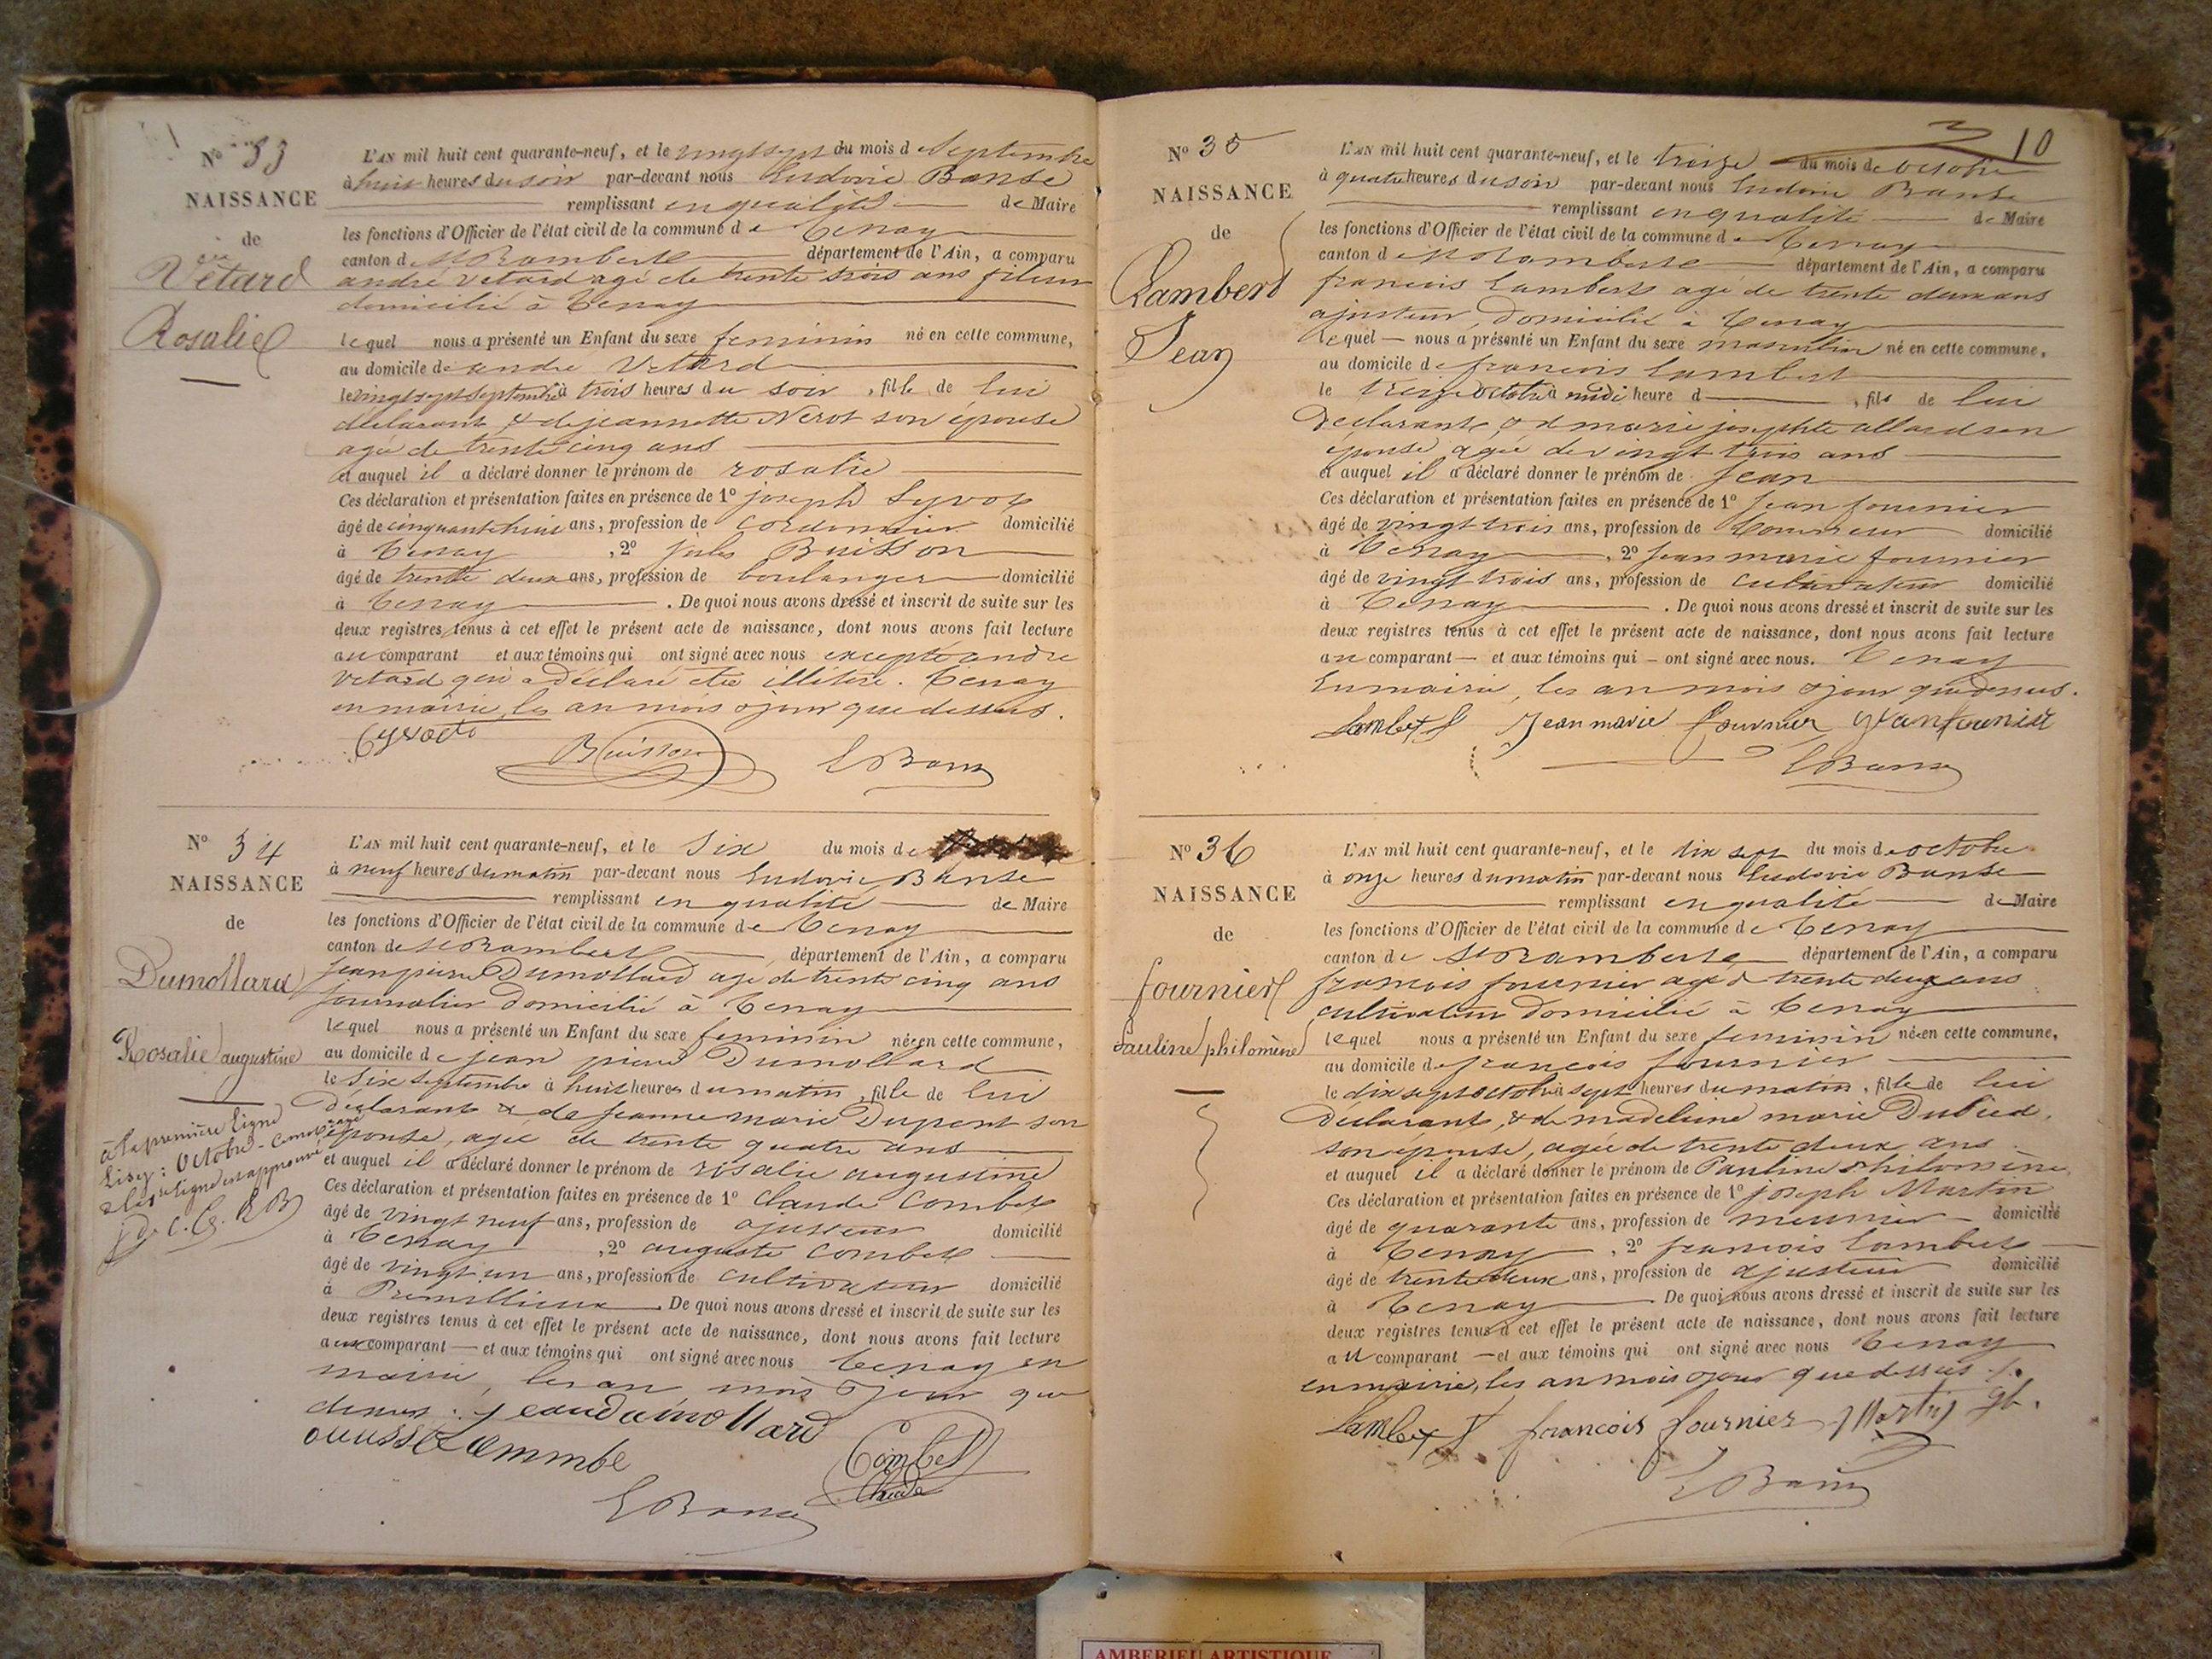 N° 33
NAISSANCE
de
Vétard
Rosalie
L'AN mil huit cent quarante-neuf, et le vingt sept du mois d Septembre
à huit heures du soir par-devant nous Ludovic Banse
remplissant en qualité de Maire
les fonctions d'Officier de l'état civil de la commune de Tenay
canton de St Rambert département de l'Ain, a comparu
andré vetard agé de trente trois ans fileur
domicilié à Tenay
lequel nous a présenté un Enfant du sexe feminin né en cette commune,
au domicile de andré Vetard
le vingt sept septembre à trois heures du soir, fille de lui
déclarant & de jeannette Nerot son épouse
agée de trente cinq ans
et auquel il a déclaré donner le prénom de rosalie
Ces déclaration et présentation faites en présence de 1° joseph
âgé de ans, profession de cordonnier domicilié
à Tenay, 2° jules Buisson
âgé de trente deux ans, profession de boulanger domicilié
à Tenay. De quoi nous avons dressé et inscrit de suite sur les
deux registres tenus à cet effet le présent acte de naissance, dont nous avons fait lecture
au comparant et aux témoins qui ont signé avec nous excepté andré
vetard qui a déclaré etre illétéré. Tenay
en mairie, les an mois & jour que dessus.
Buisson LBanse
N° 34
NAISSANCE
de
Dumollard
Rosalie augustine
à la première ligne
lisez: Octobre
J. C. L. B
L'AN mil huit cent quarante-neuf, et le Six du mois de
à neuf heures du matin par-devant nous Ludovic Banse
remplissant en qualité de Maire
les fonctions d'Officier de l'état civil de la commune de Tenay
canton de St Rambert, département de l'Ain, a comparu
jean pierre Dumollard agé de trente cinq ans
journalier domicilié à Tenay
lequel nous a présenté un Enfant du sexe feminin née en cette commune,
au domicile de jean pierre Dumollard
le Six septembre à huit heures du matin, fille de lui
déclarant & de jeanne marie Dupont son
épouse, agée de trente quatre ans
et auquel il a déclaré donner le prénom de rosalie augustine
Ces déclaration et présentation faites en présence de 1° Claude Combet
âgé de vingt neuf ans, profession de ajusteur domicilié
à Tenay, 2° auguste Combet
âgé de vingt un ans, profession de cultivateur domicilié
à Prémillieux. De quoi nous avons dressé et inscrit de suite sur les
deux registres tenus à cet effet le présent acte de naissance, dont nous avons fait lecture
aux comparant et aux témoins qui ont signé avec nous Tenay en
mairie, les an mois & jour que
dessus. jean dumollard
Combet
Claude
LBanse
10
N° 35
NAISSANCE
de
Lambert
Jean
L'AN mil huit cent quarante-neuf, et le treize du mois de octobre
à quatre heures du soir par-devant nous Ludovic Banse
remplissant en qualité de Maire
les fonctions d'Officier de l'état civil de la commune de Tenay
canton de St Rambert département de l'Ain, a comparu
françois Lambert agé de trente deux ans
ajusteur, domicilié à Tenay
lequel nous a présenté un Enfant du sexe masculin né en cette commune,
au domicile de françois Lambert
le treize octobre à midi heure d, fils de lui
Déclarant, & de marie josephte allard son
épouse agée de vingt trois ans
et auquel il a déclaré donner le prénom de Jean
Ces déclaration et présentation faites en présence de 1° jean fournier
âgé de vingt trois ans, profession de domicilié
à Tenay, 2° jean marie fournier
âgé de vingt trois ans, profession de cultivateur domicilié
à Tenay. De quoi nous avons dressé et inscrit de suite sur les
deux registres tenus à cet effet le présent acte de naissance, dont nous avons fait lecture
au comparant et aux témoins qui ont signé avec nous. Tenay
En mairie, les an mois & jour que dessus.
Lambert f Jean marie fournier
LBanse
N° 36
NAISSANCE
de
fournier
Pauline philomène
L'AN mil huit cent quarante-neuf, et le dix sept du mois de octobre
à onze heures du matin par-devant nous Ludovic Banse
remplissant en qualité de Maire
les fonctions d'Officier de l'état civil de la commune de Tenay
canton de St Rambert, département de l'Ain, a comparu
françois fournier agé de trente deux ans
cultivateur domicilié à Tenay
lequel nous a présenté un Enfant du sexe feminin née en cette commune,
au domicile de françois fournier
le dix sept octobre à sept heures du matin, fille de lui
Déclarant, & de madeleine marie Dubied,
son épouse, agée de trente deux ans
et auquel il a déclaré donner le prénom de Pauline Philomène
Ces déclaration et présentation faites en présence de 1° joseph Martin
âgé de quarante ans, profession de meunier domicilié
à Tenay, 2° françois Lambert
âgé de trente deux ans, profession de ajusteur domicilié
à Tenay. De quoi nous avons dressé et inscrit de suite sur les
deux registres tenus à cet effet le présent acte de naissance, dont nous avons fait lecture
au comparant et aux témoins qui ont signé avec nous Tenay
en mairie, les an mois & jour que dessus
Lambert f françois fournier Martin
LBanse
AMBERIEU ARTISTIQUE